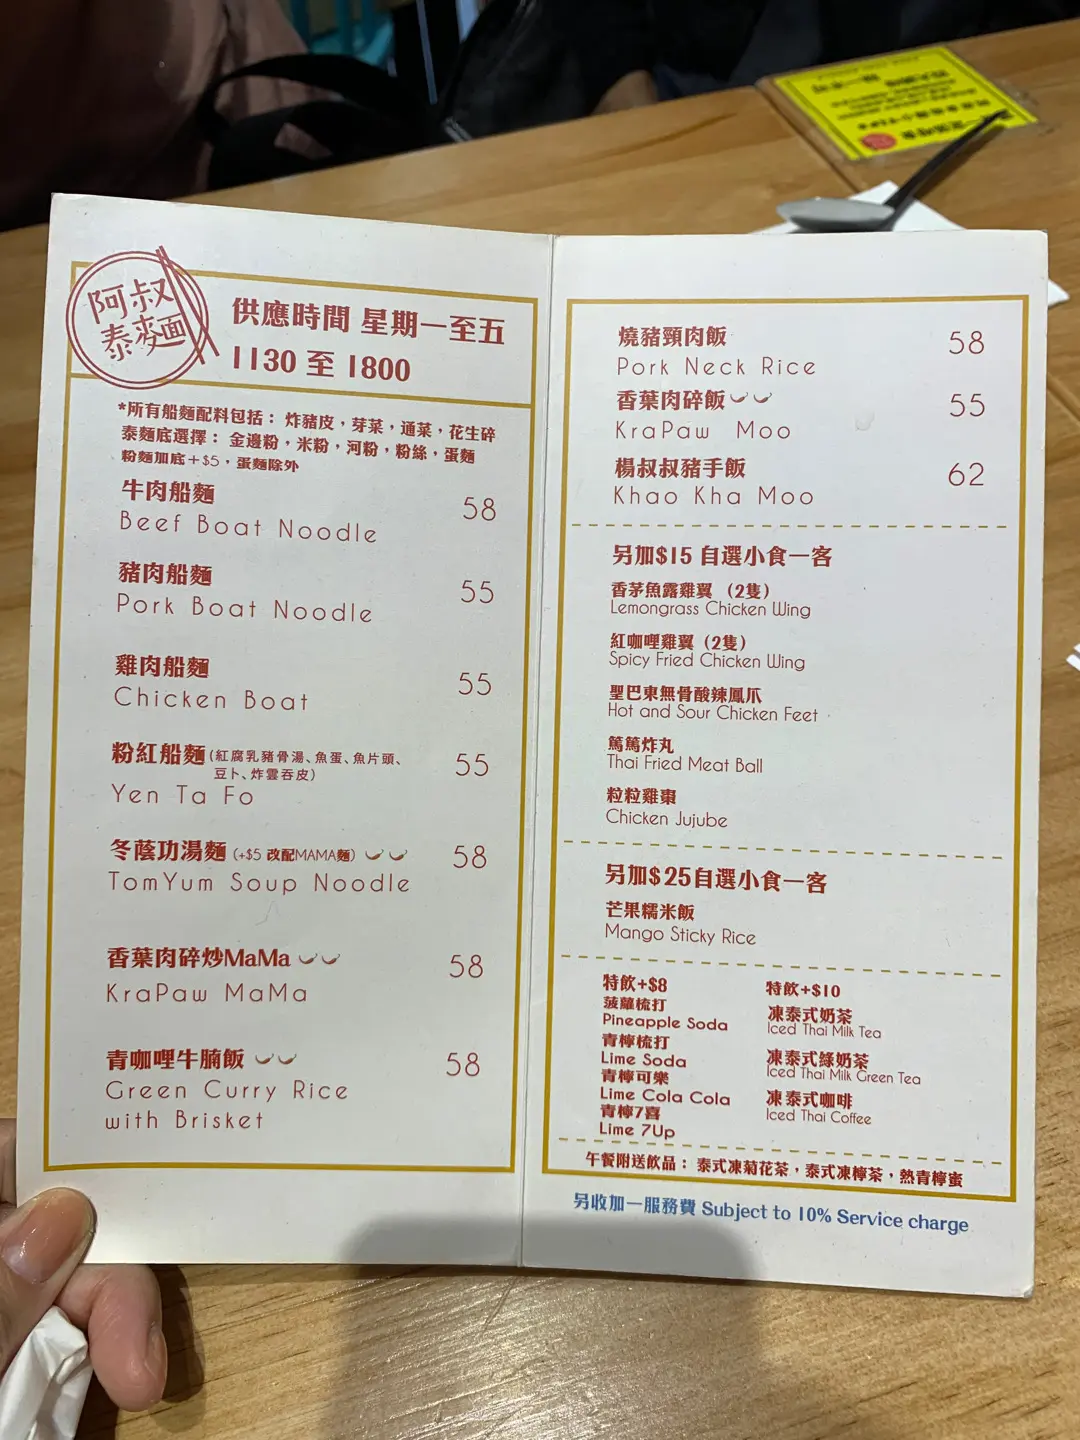 阿叔
泰麵
供應時間 星期一至五
1130 至 1800
*所有船麵配料包括： 炸豬皮，芽菜，通菜，花生碎
泰麵底選擇： 金邊粉，米粉，河粉，粉絲，蛋麵
粉麵加底＋$5，蛋麵除外
牛肉船麵
Beef Boat Noodle 58
豬肉船麵
Pork Boat Noodle 55
雞肉船麵
Chicken Boat 55
粉紅船麵 (紅腐乳豬骨湯、魚蛋、魚片頭、
豆卜、炸雲吞皮)
Yen Ta Fo 55
冬蔭功湯麵 (+$5 改配MAMA麵) 58
TomYum Soup Noodle
香葉肉碎炒MaMa 58
KraPaw MaMa
青咖哩牛腩飯 58
Green Curry Rice
with Brisket
燒豬頸肉飯 58
Pork Neck Rice
香葉肉碎飯 55
KraPaw Moo
楊叔叔豬手飯 62
Khao Kha Moo
另加$15 自選小食一客
香茅魚露雞翼 (2隻)
Lemongrass Chicken Wing
紅咖哩雞翼 (2隻)
Spicy Fried Chicken Wing
聖巴東無骨酸辣鳳爪
Hot and Sour Chicken Feet
篤篤炸丸
Thai Fried Meat Ball
粒粒雞棗
Chicken Jujube
另加$25自選小食一客
芒果糯米飯
Mango Sticky Rice
特飲+$8
菠蘿梳打
Pineapple Soda
青檸梳打
Lime Soda
青檸可樂
Lime Cola Cola
青檸7喜
Lime 7Up
特飲+$10
凍泰式奶茶
Iced Thai Milk Tea
凍泰式綠奶茶
Iced Thai Milk Green Tea
凍泰式咖啡
Iced Thai Coffee
午餐附送飲品： 泰式凍菊花茶，泰式凍檸茶，熱青檸蜜
另收加一服務費 Subject to 10% Service charge